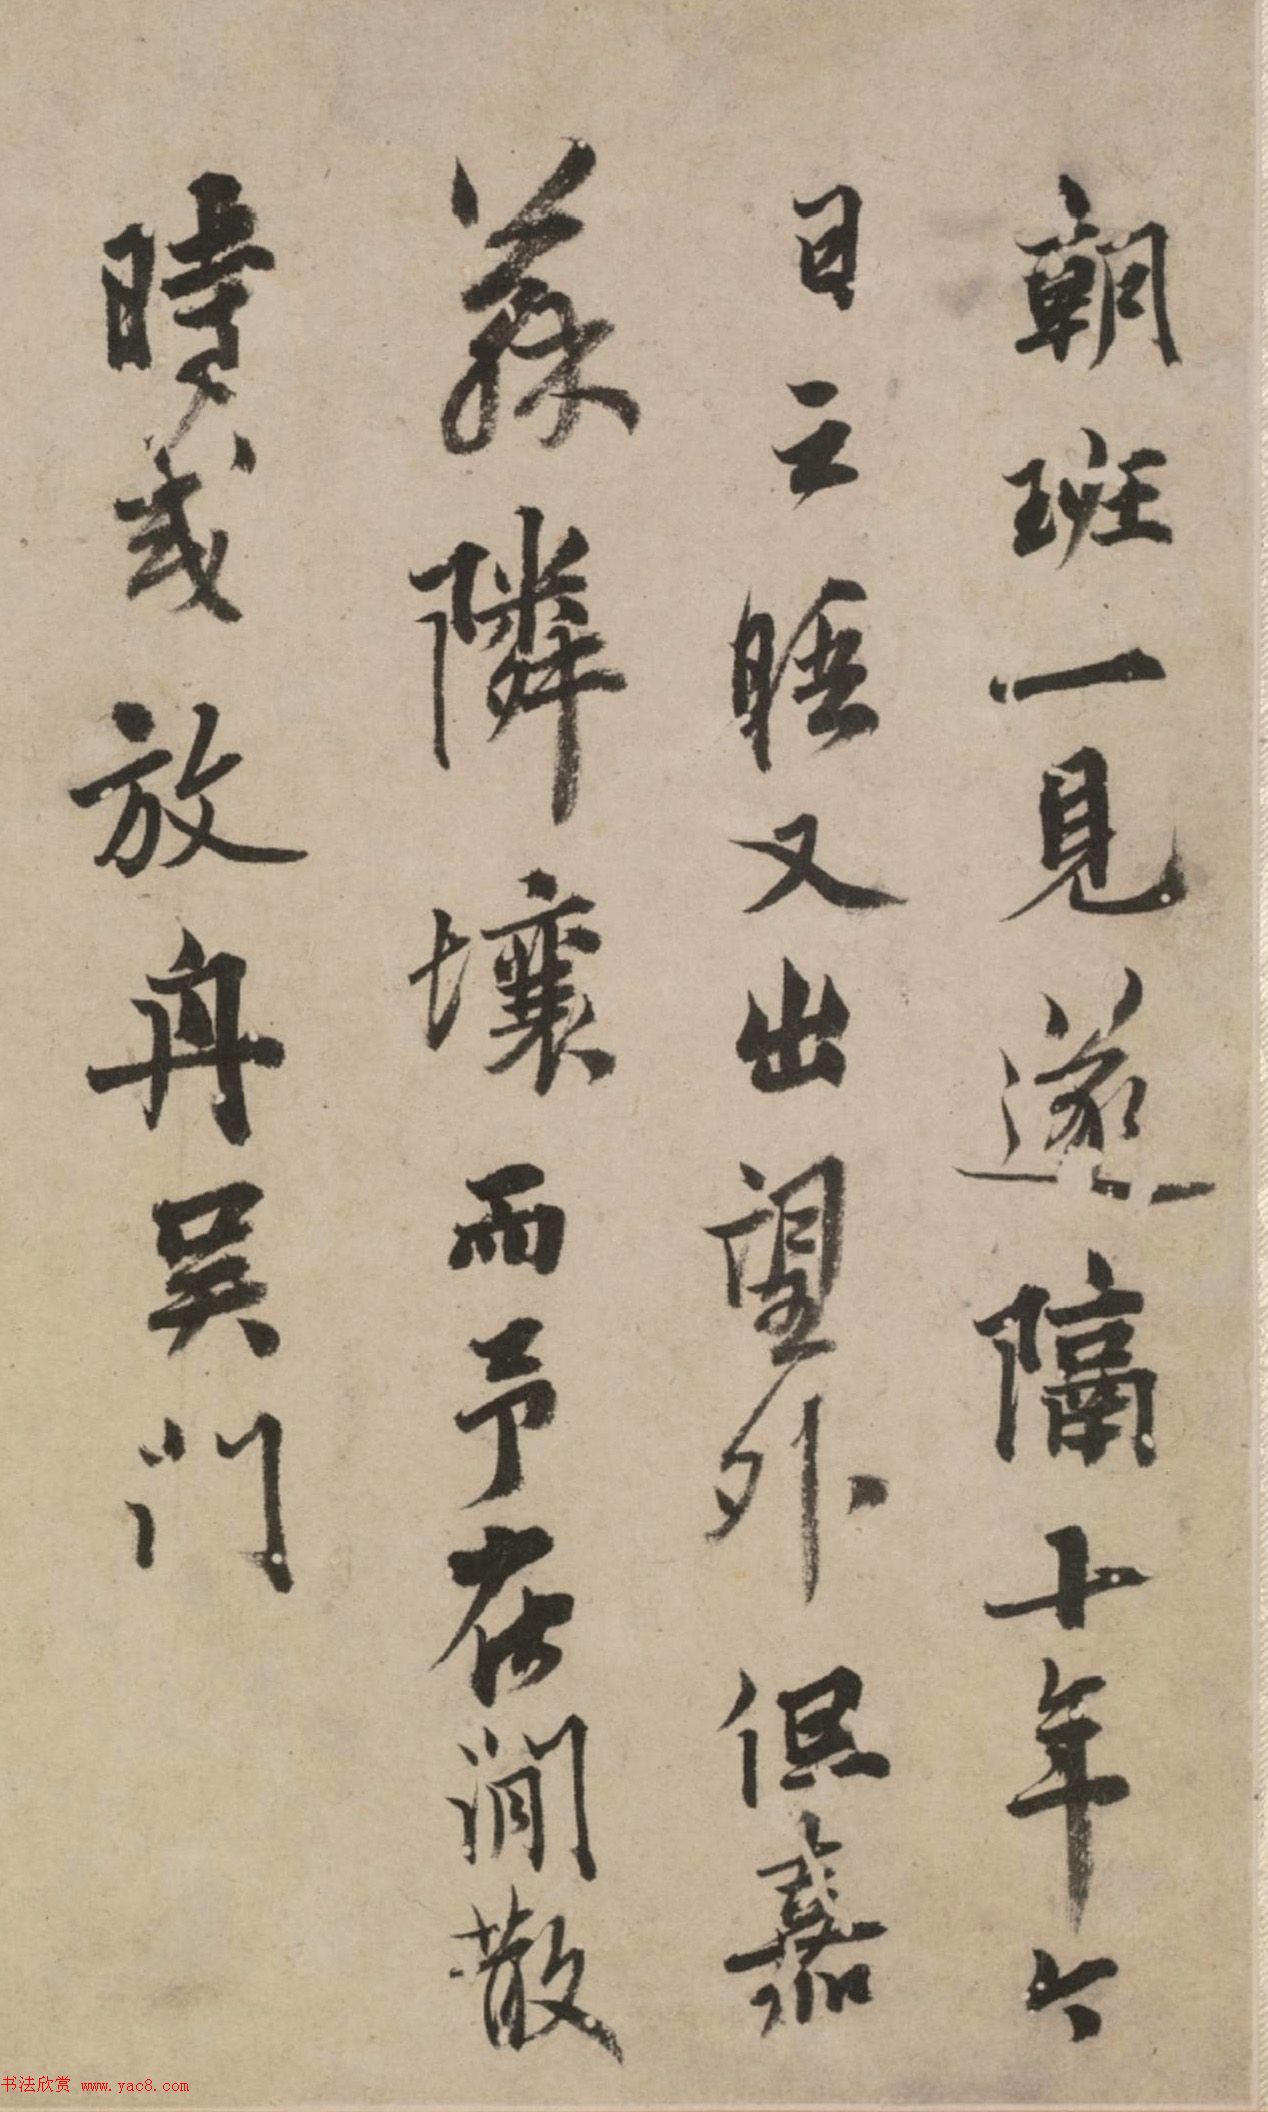 朝班一見遂隔十年今
日之晤又出望外但嘉
蘇隣壤而予在閒散
時或放舟吳門
书法欣赏 www.yac8.com